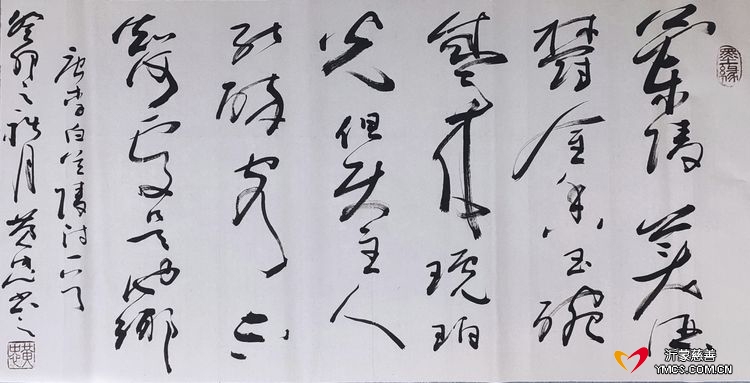 墨緣
蘭陵美酒
鬱金香玉碗
盛來琥珀
光但使主人
能醉客不
知何處是他鄉
唐李白兰陵诗一首
癸卯之腊月黄
沂蒙慈善
YMCS.COM.CN